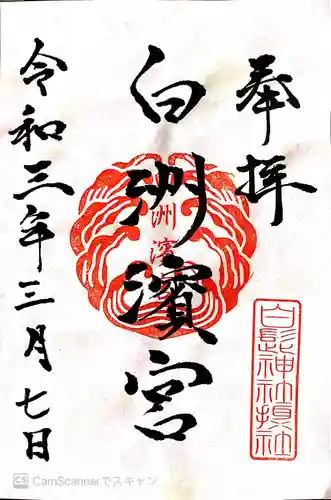 奉拝
白洲濱宮
洲濱
白髭神社摂社
令和三年三月七日
CS CamScannerでスキャン